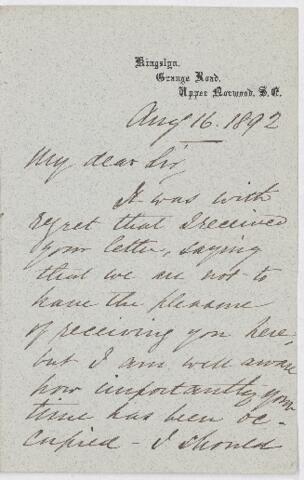 Kingslyn,
Grange Road,
Upper Norwood, S.E.
Aug 16. 1892
My dear Sir
It was with
regret that I received
your letter, saying
that we are not to
have the pleasure
of receiving you here,
but I am well aware
how importantly your
time has been oc-
cupied - I should